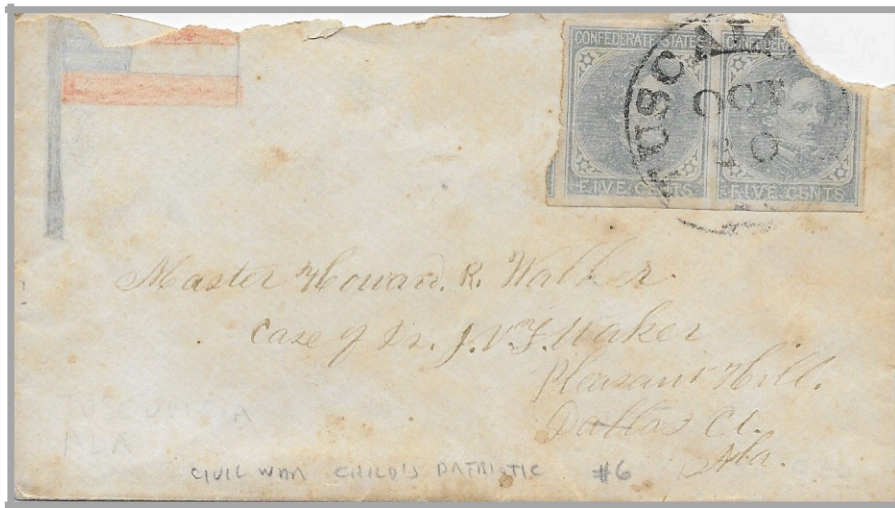 CONFEDERATE STATES CONFEDER
FIVE CENTS FIVE CENTS
TUSCAL
OCT
Master Howard. R. Walker.
Care of Dr. J. V. F. Waker
Pleasant Hill.
Dallas Ct.
Ala.
ALA
CIVIL WAR CHILD'S PATRIOTIC #6